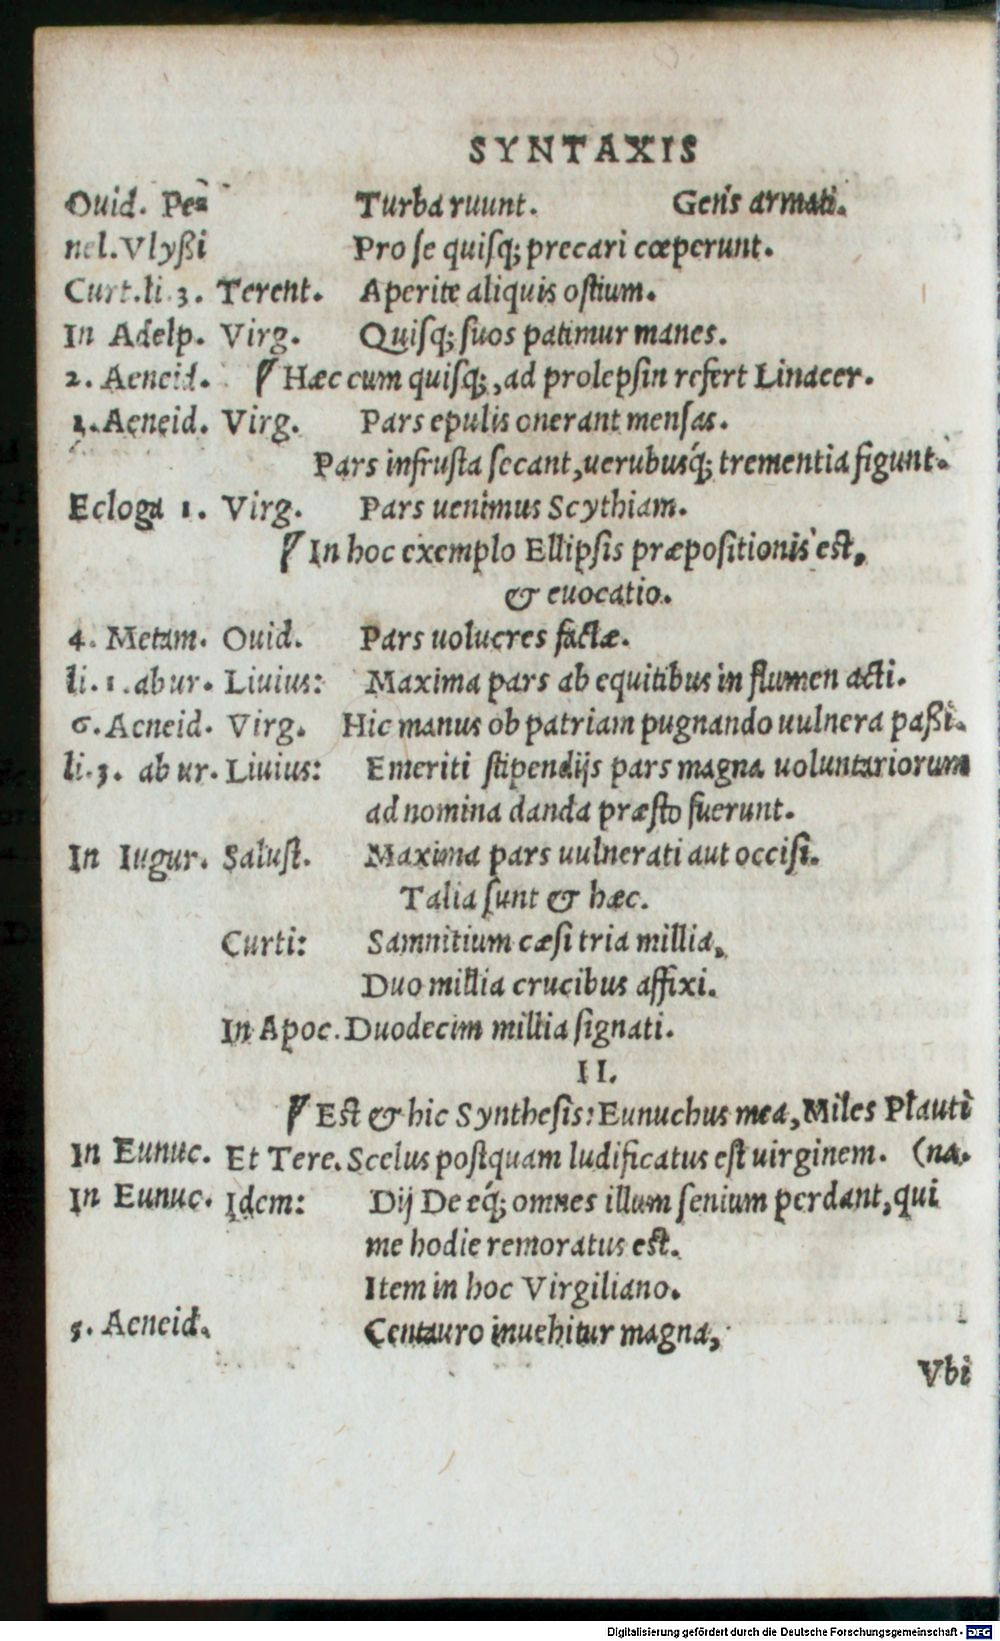 SYNTAXIS
Ouid. Pe= Turba ruunt. Gens armati.
nel. Vlyßi Pro se quisq; precari cœperunt.
Curt. li. 3. Terent. Aperite aliquis ostium.
In Adelp. Virg. Quisq; suos patimur manes.
2. Aeneid. Hæc cum quisq;, ad prolepsin refert Linacer.
1. Aeneid. Virg. Pars epulis onerant mensas.
Pars infrusta secant, uerubusq́; trementia figunt.
Ecloga 1. Virg. Pars uenimus Scythiam.
In hoc exemplo Ellipsis præpositionis est,
& euocatio.
4. Metam. Ouid. Pars uolucres factæ.
li. 1. ab ur. Liuius: Maxima pars ab equitibus in flumen acti.
6. Aeneid. Virg. Hic manus ob patriam pugnando uulnera paßi.
li. 3. ab ur. Liuius: Emeriti stipendijs pars magna uoluntariorum
ad nomina danda præsto fuerunt.
In Iugur. Salust. Maxima pars uulnerati aut occisi.
Talia sunt & hæc.
Curti: Samnitium cæsi tria millia,
Duo millia crucibus affixi.
In Apoc. Duodecim millia signati.
II.
Est & hic Synthesis: Eunuchus mea, Miles Plauti
In Eunuc. Et Tere. Scelus postquam ludificatus est uirginem. (na.
In Eunuc. Idem: Dij Deeq́; omnes illum senium perdant, qui
me hodie remoratus est.
Item in hoc Virgiliano.
5. Aeneid. Centauro inuehitur magna,
Vbi
Digitalisierung gefördert durch die Deutsche Forschungsgemeinschaft - DFG